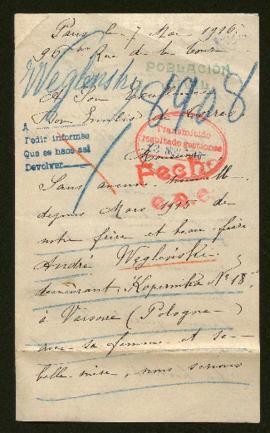 Paris le 7 Mai 1916
96 bis Rue de la Tour
Weglenski
POBLACIÓN
1908
A Son Excellence
Mon
A
Pedir informes
Que se hace así
Devolver
Transmitido
resultado gestiones
Fecho
Monsieur
Sans aucune
depuis Mars 1915 de
notre frère et beau-frère
André Weglenski
demeurant, Kopernika No 18
à Varsovie (Pologne)
avec sa femme et sa
belle-mère, nous serions